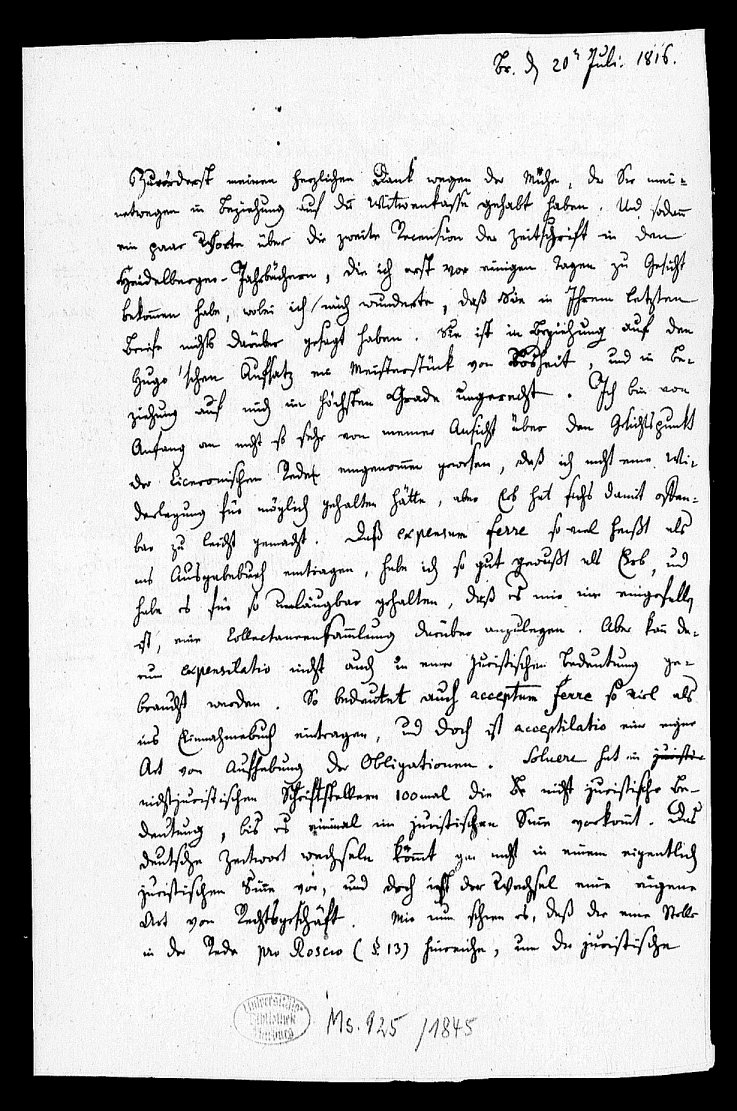 Br. d 20n Juli. 1816.
Zuvörderst meinen herzlichen Dank wegen der Mühe, die Sie mei-
netwegen in Beziehung auf die Witwenkasse gehabt haben. Und sodann
ein paar Worte über die zweite Recension der Zeitschrift in den
Heidelberger-Jahrbüchern, die ich erst vor einigen Tagen zu Gesicht
bekommen habe, wobei ich mich wunderte, daß Sie in Ihrem letzten
Briefe nichts darüber gesagt haben. Sie ist in Beziehung auf den
Hugo'schen Aufsatz ein Meisterstück von Bosheit, und in Be-
ziehung auf mich im höchsten Grade ungerecht. Ich bin von
Anfang an nicht so sehr von meiner Ansicht über den Gesichtspunkt
der Ciceronischen Rede eingenommen gewesen, daß ich nicht eine Wi-
derlegung für möglich gehalten hätte, aber Erb hat sichs damit offen-
bar zu leicht gemacht. Daß expensum ferre so viel heißt als
ins Ausgabebuch eintragen, habe ich so gut gewußt als Erb, und
habe es für so unläugbar gehalten, daß es mir nie eingefallen
ist, eine Collectaneensammlung darüber anzulegen. Aber kann da-
rum expensilatio nicht auch in einer juristischen Bedeutung ge-
braucht werden. So bedeutet auch acceptum ferre so viel als
ins Einnahmebuch eintragen, und doch ist acceptilatio eine eigne
Art von Aufhebung der Obligationen. Soluere hat in juristi-
nichtjuristischen Schriftstellern 100mal die Be nicht juristische Be-
deutung, bis es einmal im juristischen Sinne vorkommt. Das
deutsche Zeitwort wechseln kömmt gar nicht in einem eigentlich
juristischen Sinne vor, und doch ist der Wechsel eine eigene
Art von Rechtsgeschäft. Mir nun schien es, daß die eine Stelle
in der Rede pro Roscio (§. 13) hinreiche, um die juristische
Universitäts
Bibliothek
Marburg
Ms. 925 /1845